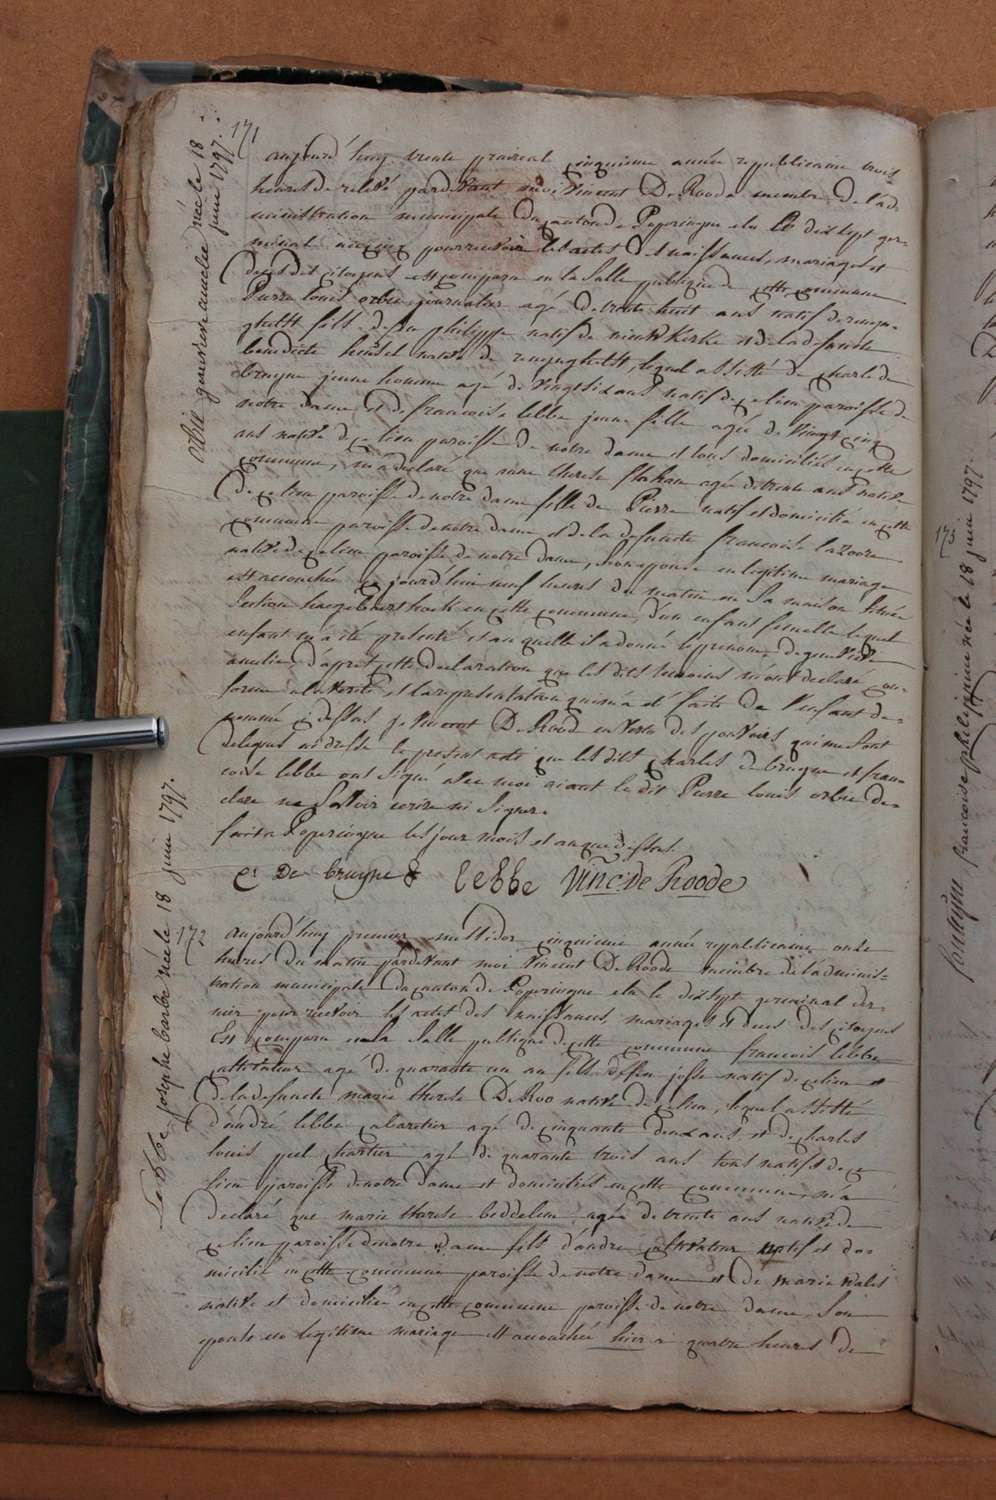 171
orbie genevieve amelie née le 18 juin 1797.
aujourd'huy trente prairial cinquieme année republicaine trois
heures de relevé pardevant moi Vincent De Roode membre de l'ad-
ministration municipale du canton de Poperingue elu le dixsept ger-
minal pour recevoir les actes de naissances, mariages et
deces des citoyens est comparu en la salle publique de cette commune
Pierre louis orbie journalier agé de trente huit ans natif de renyn-
ghelst fils de feu philippe natif de nieuwkerke et de la defuncte
benedicte natif de renynghelst, lequel assisté de charle de
bruyne jeune homme agé de vingt six ans natif de ce lien paroisse de
notre dame et de francoise lebbe jeune fille agée de vingt cinq
ans native de ce lien paroisse de notre dame et tous domiciliés en cette
commune, m'a declaré que anne therese agée de trente ans native
de ce lien paroisse de notre dame fille de Pierre natif et domicilié en cette
commune paroisse de notre dame et de la defuncte francoise
native de ce lien paroisse de notre dame, son epouse en legitime mariage
est accouchée ce jourd'hui neuf heures du matin en sa maison située
section en cette commune, d'un enfant femelle lequel
enfant m'a été presenté et au quelle il a donné le prenoms de genevieve
amelie, d'apres cette declaration que les dits temoins m'ont declaré con-
forme a la verité et la representation qui m'a été faite de l'enfant de-
nommée ci dessus je Vincent De Roode en vertu des pouvoirs qui me sont
delegués ai dressé le present acte que les dits charles de bruyne et fran-
coise lebbe ont signé avec moi aiant le dit Pierre louis orbie de-
claré ne savoir ecrire ni signer.
fait a Poperingue les jour mois et an que dessus.
cs De bruyne lebbe Vinc: De Roode
172
Lebbe, josephe barbe née le 18 juin 1797.
aujourd'huy premier messidor cinquieme année republicaine onze
heures du matin pardevant moi Vincent De Roode membre de l'adminis-
tration municipale du canton de Poperingue elu le dixsept germinal der-
nier pour recevoir les actes des naissances, mariages et deces des citoyens
Est comparu en la salle publique de cette commune francois lebbe
cultivateur agé de quarante un an fils de feu josse natif de ce lien et
de la defuncte marie therese De Roo native de ce lien, lequel assisté
d'andré lebbe cabaretier agé de cinquante deux ans et de charles
louis peel chartier agé de quarante trois ans tous natifs de ce
lien paroisse de notre dame et domiciliés en cette commune, m'a
declaré que marie therese beddeleem, agée de trente ans native de
ce lien paroisse de notre dame fille d'andre cultivateur natif et do-
micilié en cette commune paroisse de notre dame et de marie
native et domiciliée en cette commune paroisse de notre dame, son
epouse en legitime mariage est accouchée hier a quatre heures de
173
francoise philippine née le 18 juin 1797.